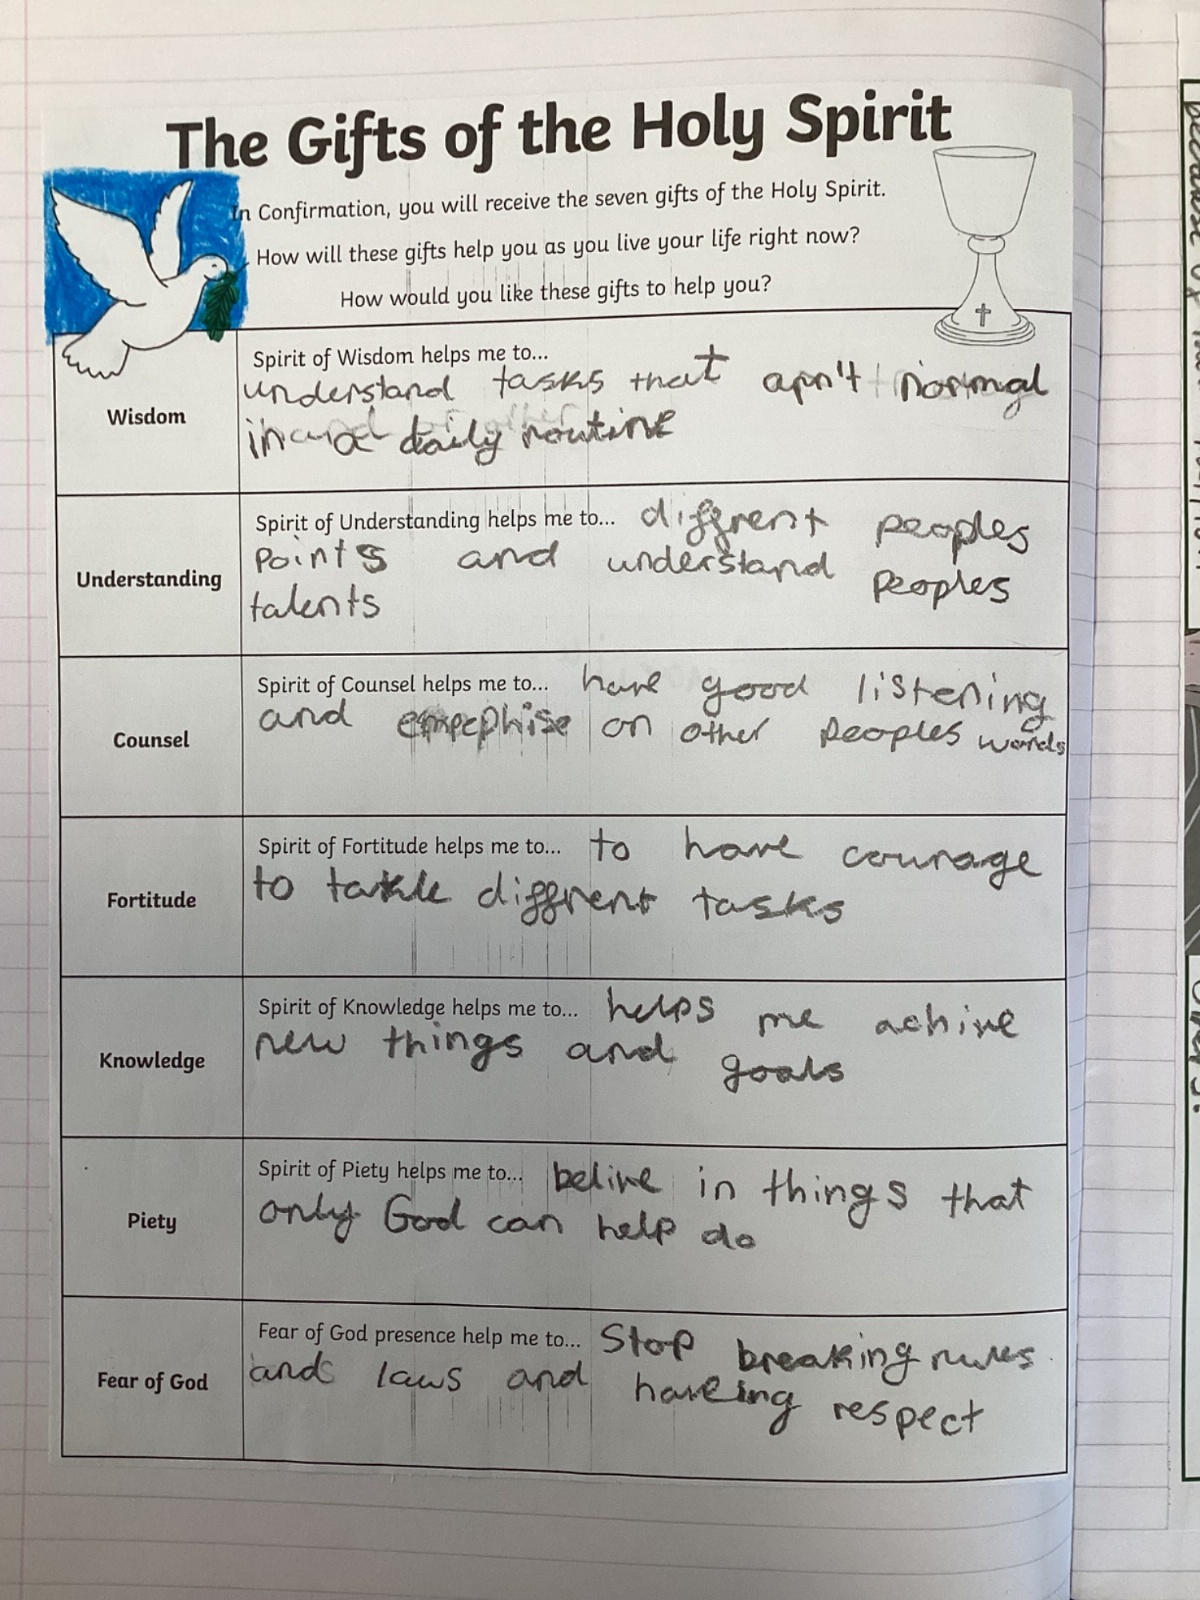 The Gifts of the Holy Spirit
In Confirmation, you will receive the seven gifts of the Holy Spirit.
How will these gifts help you as you live your life right now?
How would you like these gifts to help you?
Wisdom
Spirit of Wisdom helps me to...
understand tasks that arn't normal
in a daily routine
Understanding
Spirit of Understanding helps me to... diffrent peoples
points and understand peoples
talents
Counsel
Spirit of Counsel helps me to... have good listening
and empephise on other peoples words
Fortitude
Spirit of Fortitude helps me to... to have courage
to takle diffrent tasks
Knowledge
Spirit of Knowledge helps me to... helps me achive
new things and goals
Piety
Spirit of Piety helps me to... belive in things that
only God can help do
Fear of God
Fear of God presence help me to... Stop breaking rules
and laws and haveing respect